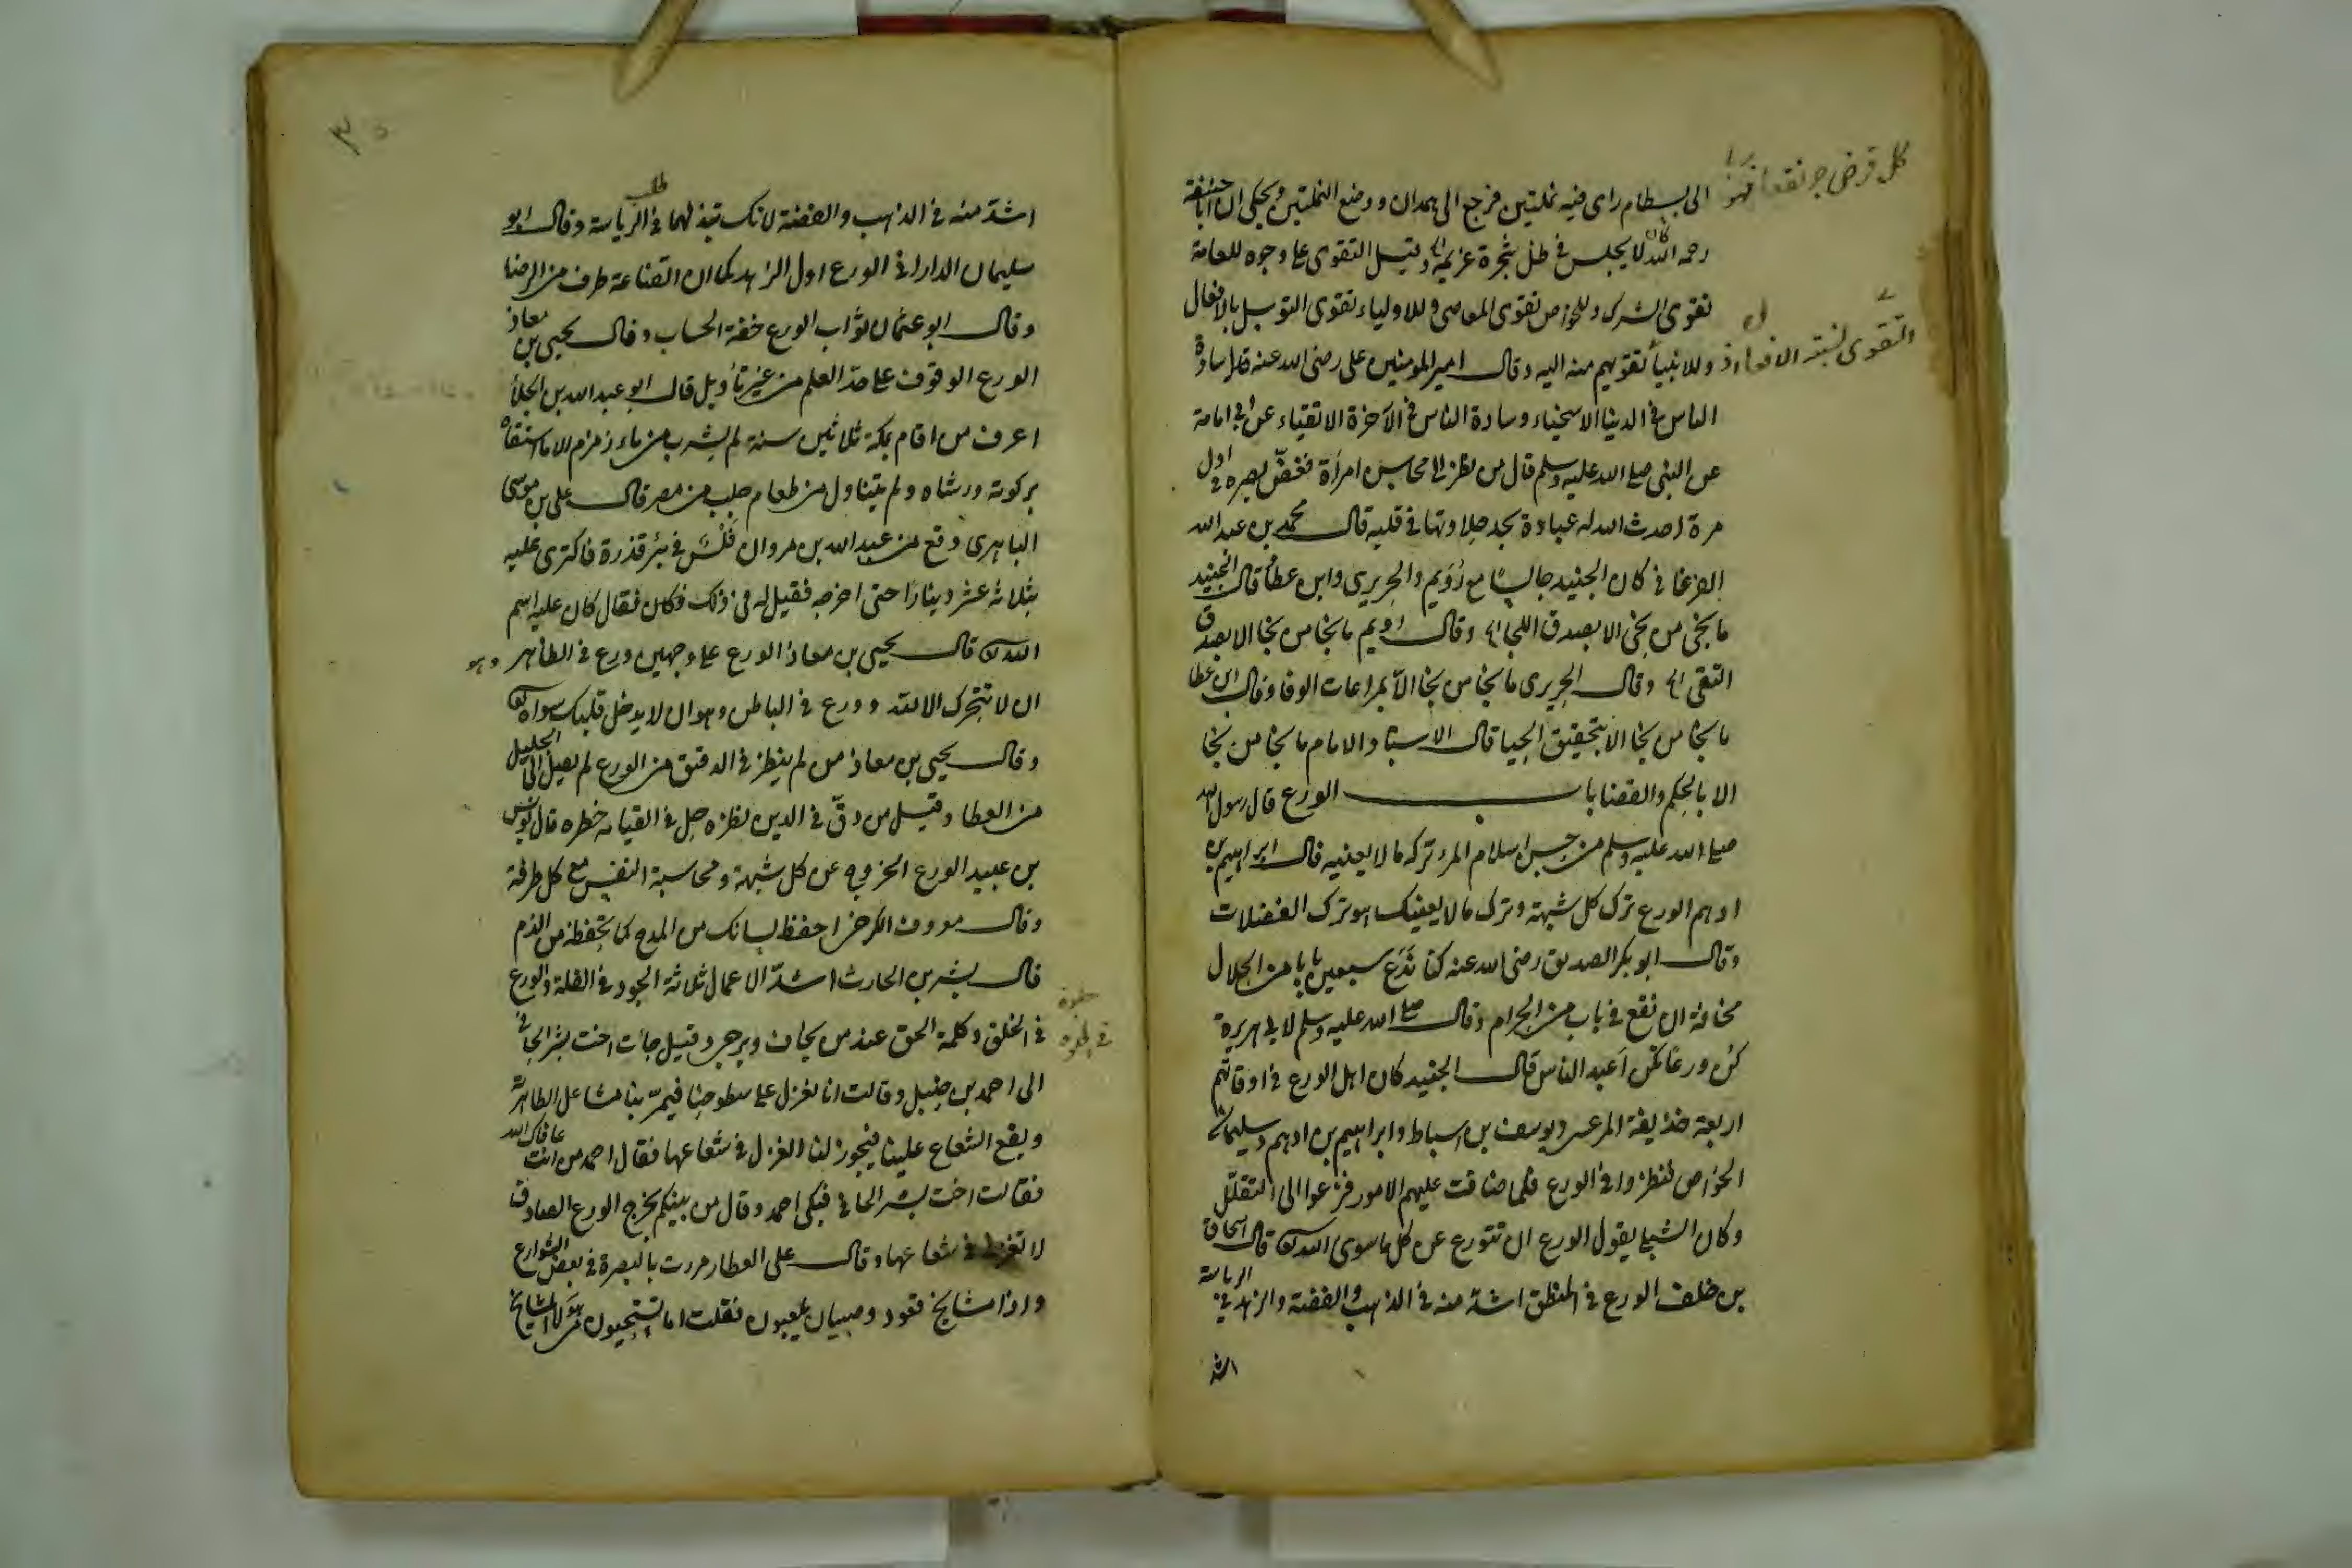 كل قرض جر نفعا فهو ربا
الى بسطام راى فيه نملتين فرجع الى همدان ووضع النملتين ويحكى ان ابا حنيفة
رحمه الله كان لا يجلس في ظل شجرة غريمه وقيل التقوى على وجوه للعامة
تقوى الشرك وللخواص تقوى المعاصى وللاولياء تقوى التوسل بالافعال
وللانبياء تقويهم منه اليه وقال امير المومنين على رضى الله عنه قال سادة
الناس في الدنيا الاسخياء وسادة الناس في الآخرة الاتقياء عن ابي امامة
عن النبى صلى الله عليه وسلم قال من نظر الى محاسن امرأة فغضّ بصره في اول
مرة احدث الله له عبادة يجد حلاوتها في قلبه قال محمد بن عبد الله
الفرغانى كان الجنيد جالسًا مع رُوَيم والجريرى وابن عطأ قال الجنيد
ما نجى من نجى الا بصدق اللجا وقال رويم ما نجا من نجا الا بصدق
التقى وقال الجريرى ما نجا من نجا الّا بمراعات الوفا وقال ابن عطا
ما نجا من نجا الا بتحقيق الحيا قال الاستاد الامام ما نجا من نجا
الا بالحكم والقضا باب الورع قال رسول الله
صلى الله عليه وسلم من حسن اسلام المرء تركه ما لا يعنيه قال ابراهيم بن
ادهم الورع ترك كل شبهة وترك ما لا يعنيك هو ترك الفضلات
وقال ابو بكر الصديق رضى الله عنه كنا نَدَع سبعين بابا من الحلال
مخافة ان نقع في باب من الحرام وقال صلى الله عليه وسلم لابي هريرة
كن ورعًا تكن اَعبد الناس قال الجنيد كان اهل الورع في اوقاتهم
اربعة حذيفة المرعشى ويوسف بن اسباط وابراهيم بن ادهم وسليمان
الخواص فنظروا في الورع فلما ضاقت عليهم الامور فزعوا الى التقلّل
وكان الشبلى يقول الورع ان تتورع عن كل ما سوى الله قال اسحاق
بن خلف الورع في المنطق اشدّ منه في الذهب والفضة والزهد في الرياسة
اشد
اشدّ منه في الذهب والفضة لانك تبذلهما في طلب الرياسة وقال ابو
سليمان الدارانى الورع اول الزهد كما ان القناعة طرف من الرضا
وقال ابو عثمان ثواب الورع خفة الحساب وقال يحيى بن معاذ
الورع الوقوف على حدّ العلم من غير تأويل قال ابو عبد الله بن الجلأ
اعرف من اقام بمكة ثلاثين سنة لم يشرب من ماء زمزم الا ما استقاه
بركوته ورشاه ولم يتناول من طعام جلب من مصر قال على بن موسى
الباهرى وقع من عبد الله بن مروان فَلْس في بئر قذرة فاكترى عليه
بثلاثة عشر دينارًا حتى اخرجه فقيل له في ذلك فقال كان عليه اسم
الله قال يحيى بن معاذ الورع على وجهين ورع في الظاهر وهو
ان لا تتحرك الا لله وورع في الباطن وهو ان لا يدخل قلبك سواه
وقال يحيى بن معاذ من لم ينظر في الدقيق من الورع لم يصل الى الجليل
من العطا وقيل من دقّ في الدين نظره جل في القيامة خطره قال يونس
بن عبيد الورع الخروج عن كل شبهة ومحاسبة النفس مع كل طرفة
وقال معروف الكرخى احفظ لسانك من المدح كما تحفظه من الذم
قال بشر بن الحارث اشدّ الاعمال ثلاثة الجود في القلة والورع
في الخلق وكلمة الحق عند من يخاف ويرجى وقيل جأت اخت بشر الحافي
الى احمد بن حنبل وقالت انا نغزل على سطوحنا فيمرّ بنا مشاعل الطاهرية
ويقع الشعاع علينا فيجوز لنا الغزل في شعاعها فقال احمد من انت عافاك الله
فقالت اخت بشر الحافي فبكى احمد وقال من بينكم يخرج الورع الصادق
لا تغزلى في شعاعها وقال على العطار مررت بالبصرة في بعض الشوارع
واذا مشايخ قعود وصبيان يلعبون فقلت اما تستحيون من هؤلاء المشايخ